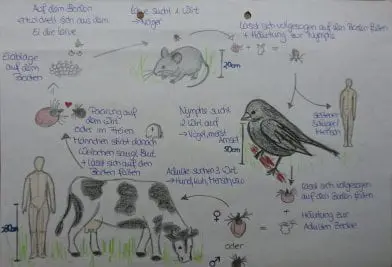 Auf dem Boden
entwickelt sich aus dem
Ei die Larve
Larve sucht 1. Wirt
Nager
Lässt sich vollgesogen auf den Boden fallen
+ Häutung zur Nymphe
Eiablage
auf dem
Boden
20cm
Paarung auf
dem Wirt
oder im Freien
Männchen stirbt danach
Weibchen saugt Blut
+ lässt sich auf den
Boden fallen
Nymphe sucht
2. Wirt auf
→ Vögel, meist
Amsel
30cm
seltener
Mensch
Adulte suchen 3. Wirt
→ Hund, Kuh, Mensch
180cm
lässt sich vollgesogen
auf den Boden fallen
+
Häutung zur
Adulten Zecke
♀
oder
♂
=